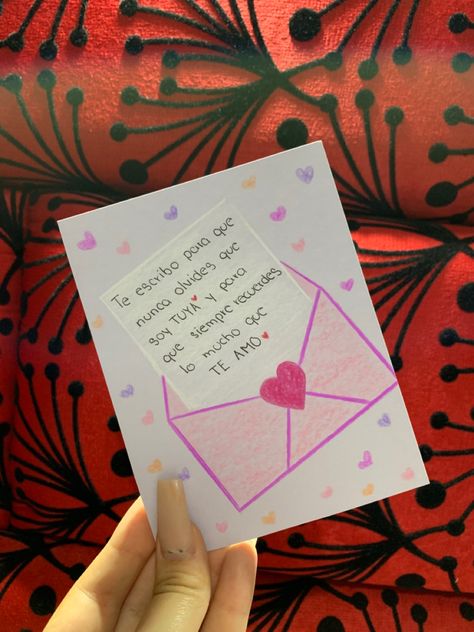 Te escribo para que
nunca olvides que
soy TUYA y para
que siempre recuerdes
lo mucho que
TE AMO